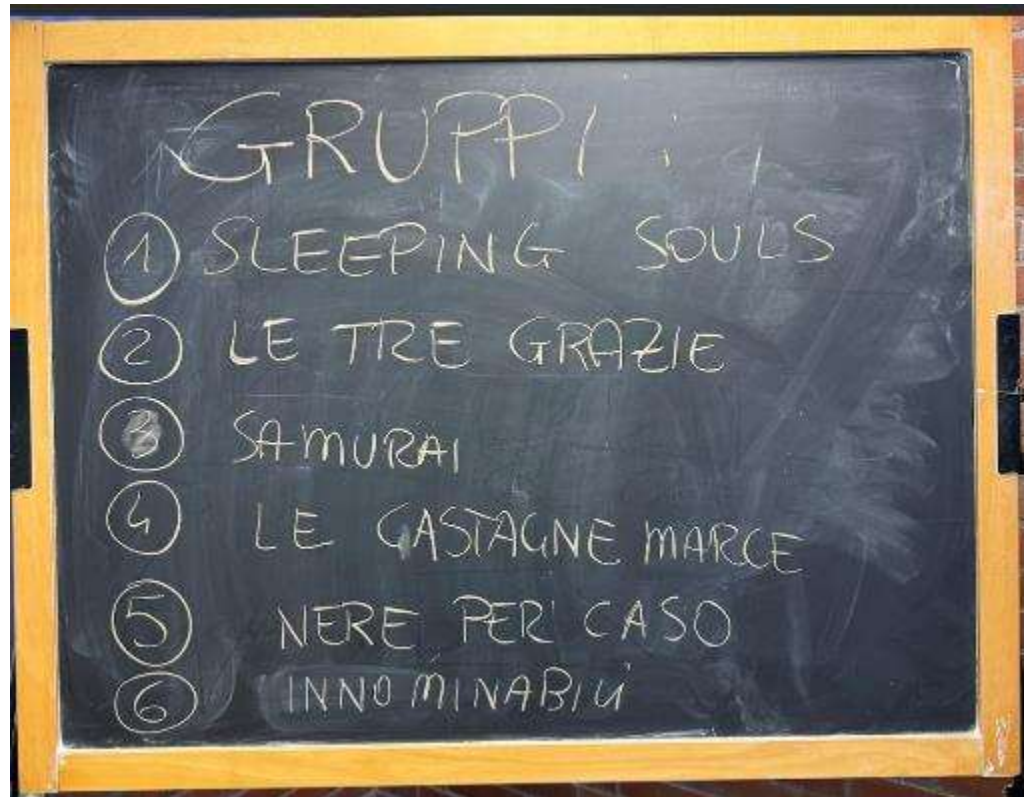 GRUPPI :
1 SLEEPING SOULS
2 LE TRE GRAZIE
3 SAMURAI
4 LE CASTAGNE MARCE
5 NERE PER CASO
6 INNOMINABILI